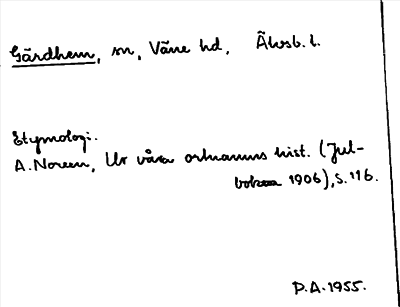 Gärdhem, sn, Väne hd, Älvsb. l.
Etymologi.
A. Noreen, Ur våra ortnamns hist. (Jul-
boken 1906), s. 116.
P.A. 1955.